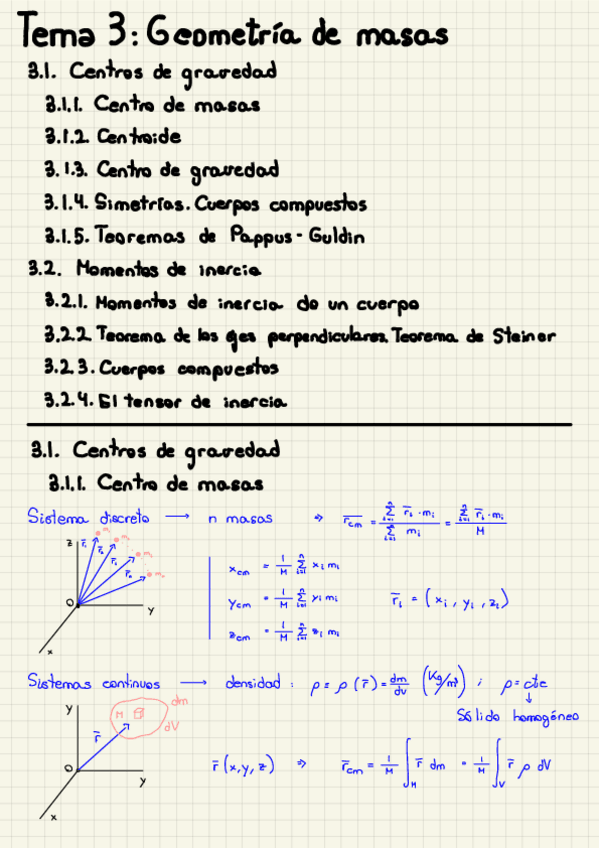 Tema 3: Geometría de masas
3.1. Centros de gravedad
3.1.1. Centro de masas
3.1.2 Centroide
3.1.3. Centro de gravedad
3.1.4. Simetrías. Cuerpos compuestos
3.1.5. Teoremas de Pappus-Guldin
3.2. Momentos de inercia
3.2.1. Momentos de inercia de un cuerpo
3.2.2 Teorema de los ejes perpendiculares. Teorema de Steiner
3.2.3. Cuerpos compuestos
3.2.4. El tensor de inercia
3.1. Centros de gravedad
3.1.1. Centro de masas
Sistema discreto → n masas ⇒ r̄cm = Σⁿᵢ₌₁ r̄ᵢ·mᵢ / Σⁿᵢ₌₁ mᵢ = Σⁿᵢ₌₁ r̄ᵢ·mᵢ / M
z r̄₁ r̄₂ r̄ᵢ r̄ₙ m₁ m₂ mᵢ mₙ
O y x
xcm = 1/M Σⁿᵢ₌₁ xᵢ mᵢ
ycm = 1/M Σⁿᵢ₌₁ yᵢ mᵢ r̄ᵢ = (xᵢ, yᵢ, zᵢ)
zcm = 1/M Σⁿᵢ₌₁ zᵢ mᵢ
Sistemas continuos → densidad: ρ = ρ(r̄) = dm/dV (Kg/m³) ; ρ = cte
↓
Sólido homogéneo
y M dm dV r̄
O y x
r̄(x,y,z) ⇒ r̄cm = 1/M ∫M r̄ dm = 1/M ∫V r̄ ρ dV